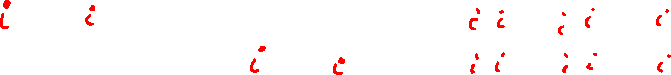 i i i i i i i
i i i i i i i